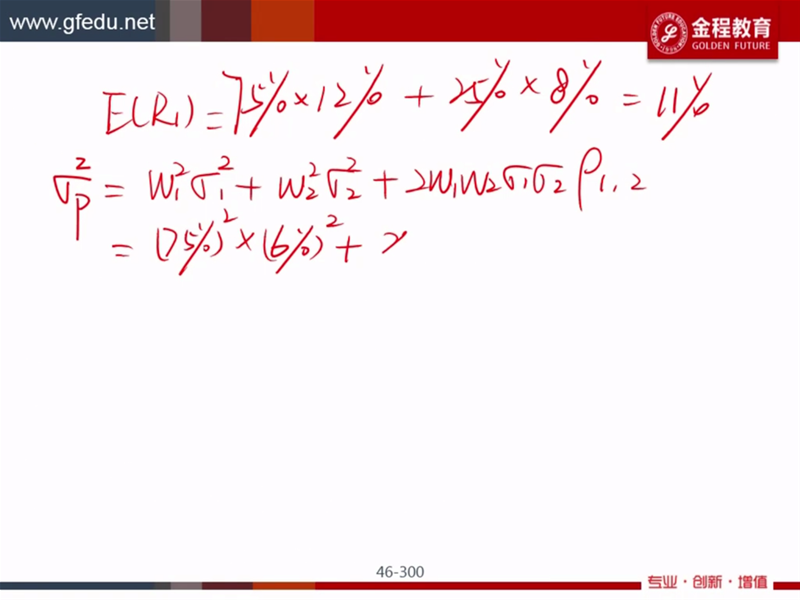 www.gfedu.net
金程教育
GOLDEN FUTURE
E(R₁) = 75% × 12% + 25% × 8% = 11%
σₚ² = W₁²σ₁² + W₂²σ₂² + 2W₁W₂σ₁σ₂ρ₁,₂
= (75%)² × (6%)² +
46-300
专业·创新·增值